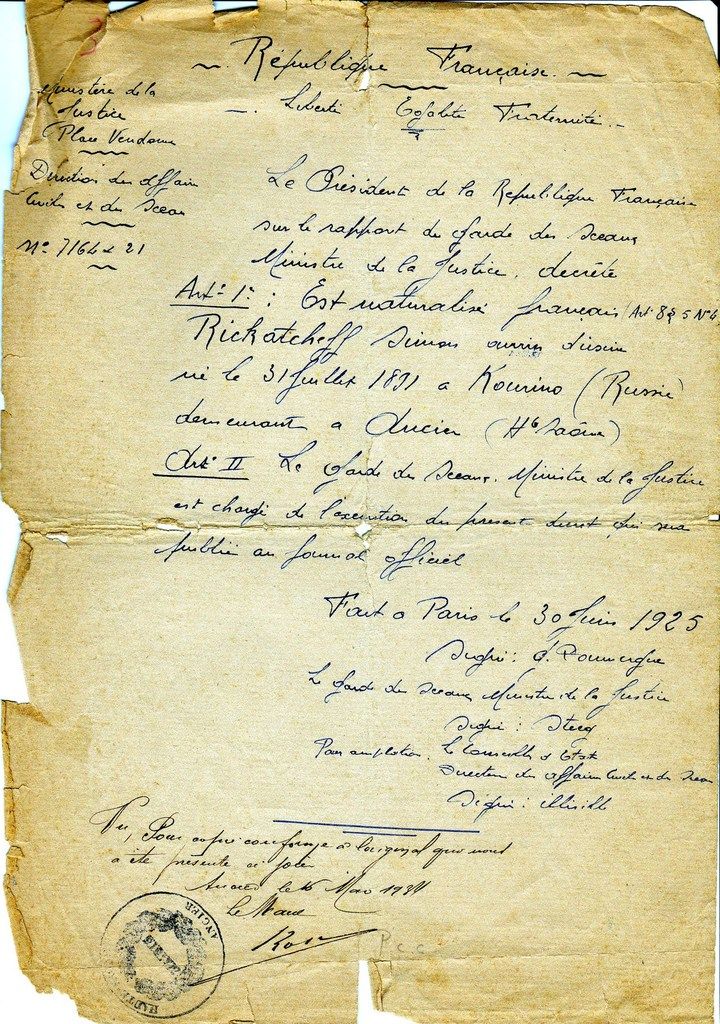 République Française
Ministère de la
Justice
Place Vendome
Liberté Egalité Fraternité
Direction des affaires
Civiles et du Sceau
N° 7164 x 21
Le Président de la République Française
sur le rapport du Garde des Sceaux
Ministre de la Justice, decrète
Art. 1er : Est naturalisé français (Art 8 § 5 N° 4
Rickatcheff Simon ouvrier d'usine
né le 31 Juillet 1891 a Kourino (Russie)
demeurant a Ancier (Hte Saône)
Art II Le Garde des Sceaux, Ministre de la Justice
est chargé de l'execution du present decret qui sera
publié au Journal officiel
Fait a Paris le 30 Juin 1925
Signé : G. Doumergue
Le Garde des Sceaux Ministre de la Justice
Signé : Steeg
Pour ampliation, le Conseiller d'Etat
Directeur des affaires Civiles et du Sceau
Signé : illisible
Vu, Pour copie conforme à l'original qui nous
a été présenté ce jour
Ancier le 16 Mars
Le Maire
P c c
MAIRIE
ANCIER
HAUTE